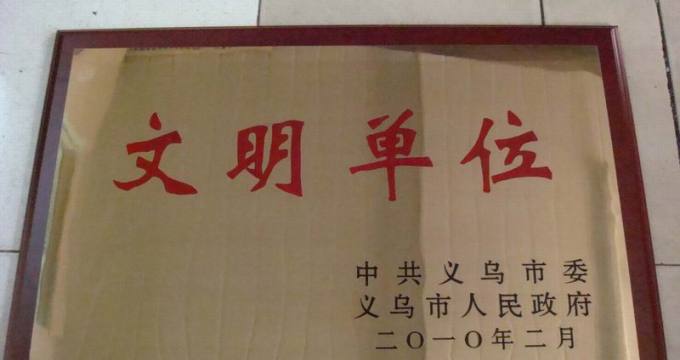 文明单位
中共义乌市委
义乌市人民政府
二〇一〇年二月